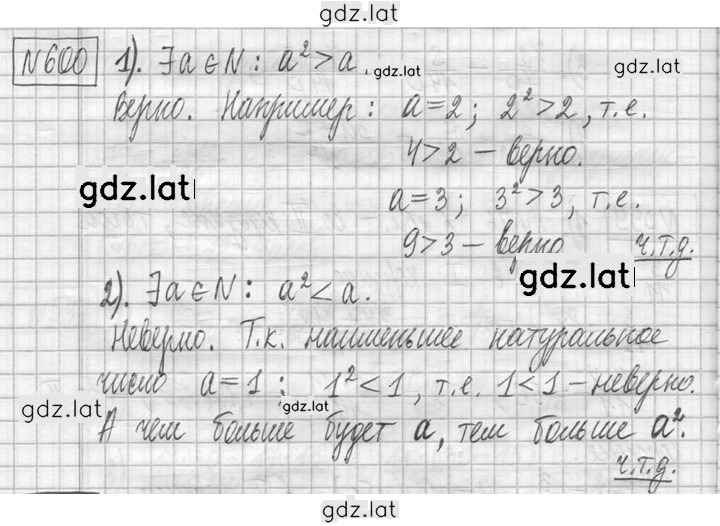 gdz.lat
N600 1). ∃a∈N: a²>a. gdz.lat gdz.lat
Верно. Например: a=2; 2²>2, т.е.
4>2 – верно.
gdz.lat
a=3; 3²>3, т.е.
9>3 – верно ч.т.д.
gdz.lat
2). ∃a∈N: a²<a.
Неверно. Т.к. наименьшее натуральное
число a=1: 1²<1, т.е. 1<1 – неверно.
gdz.lat gdz.lat
А чем больше будет a, тем больше a².
ч.т.д.
gdz.lat